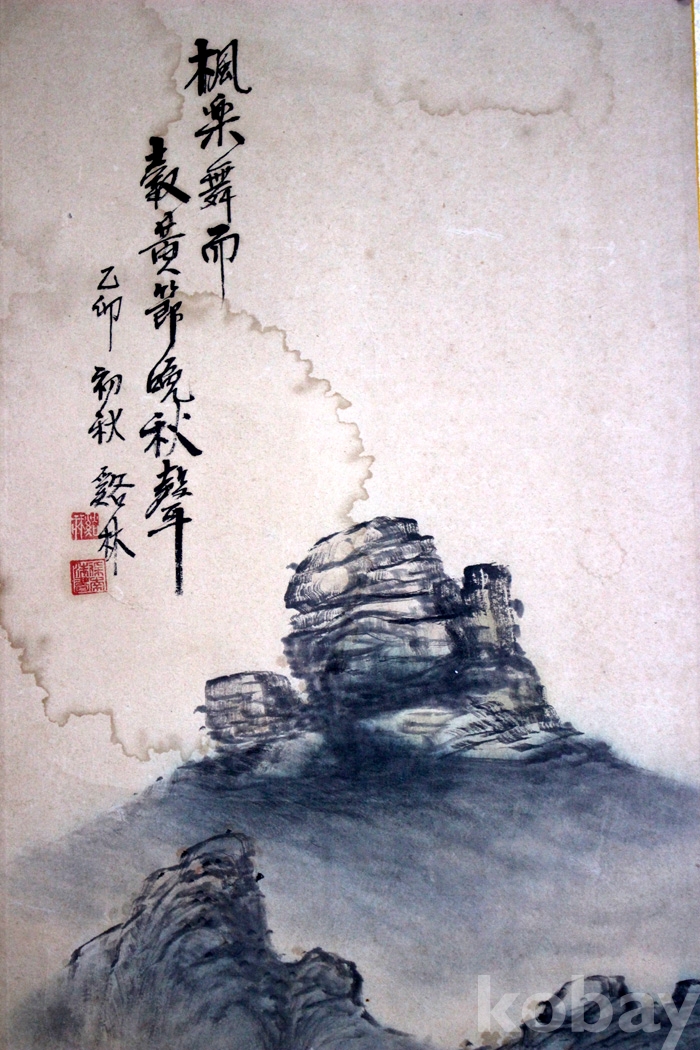 楓楽舞而
穀黃節晚秋聲
乙卯 初秋 谿林
kobay